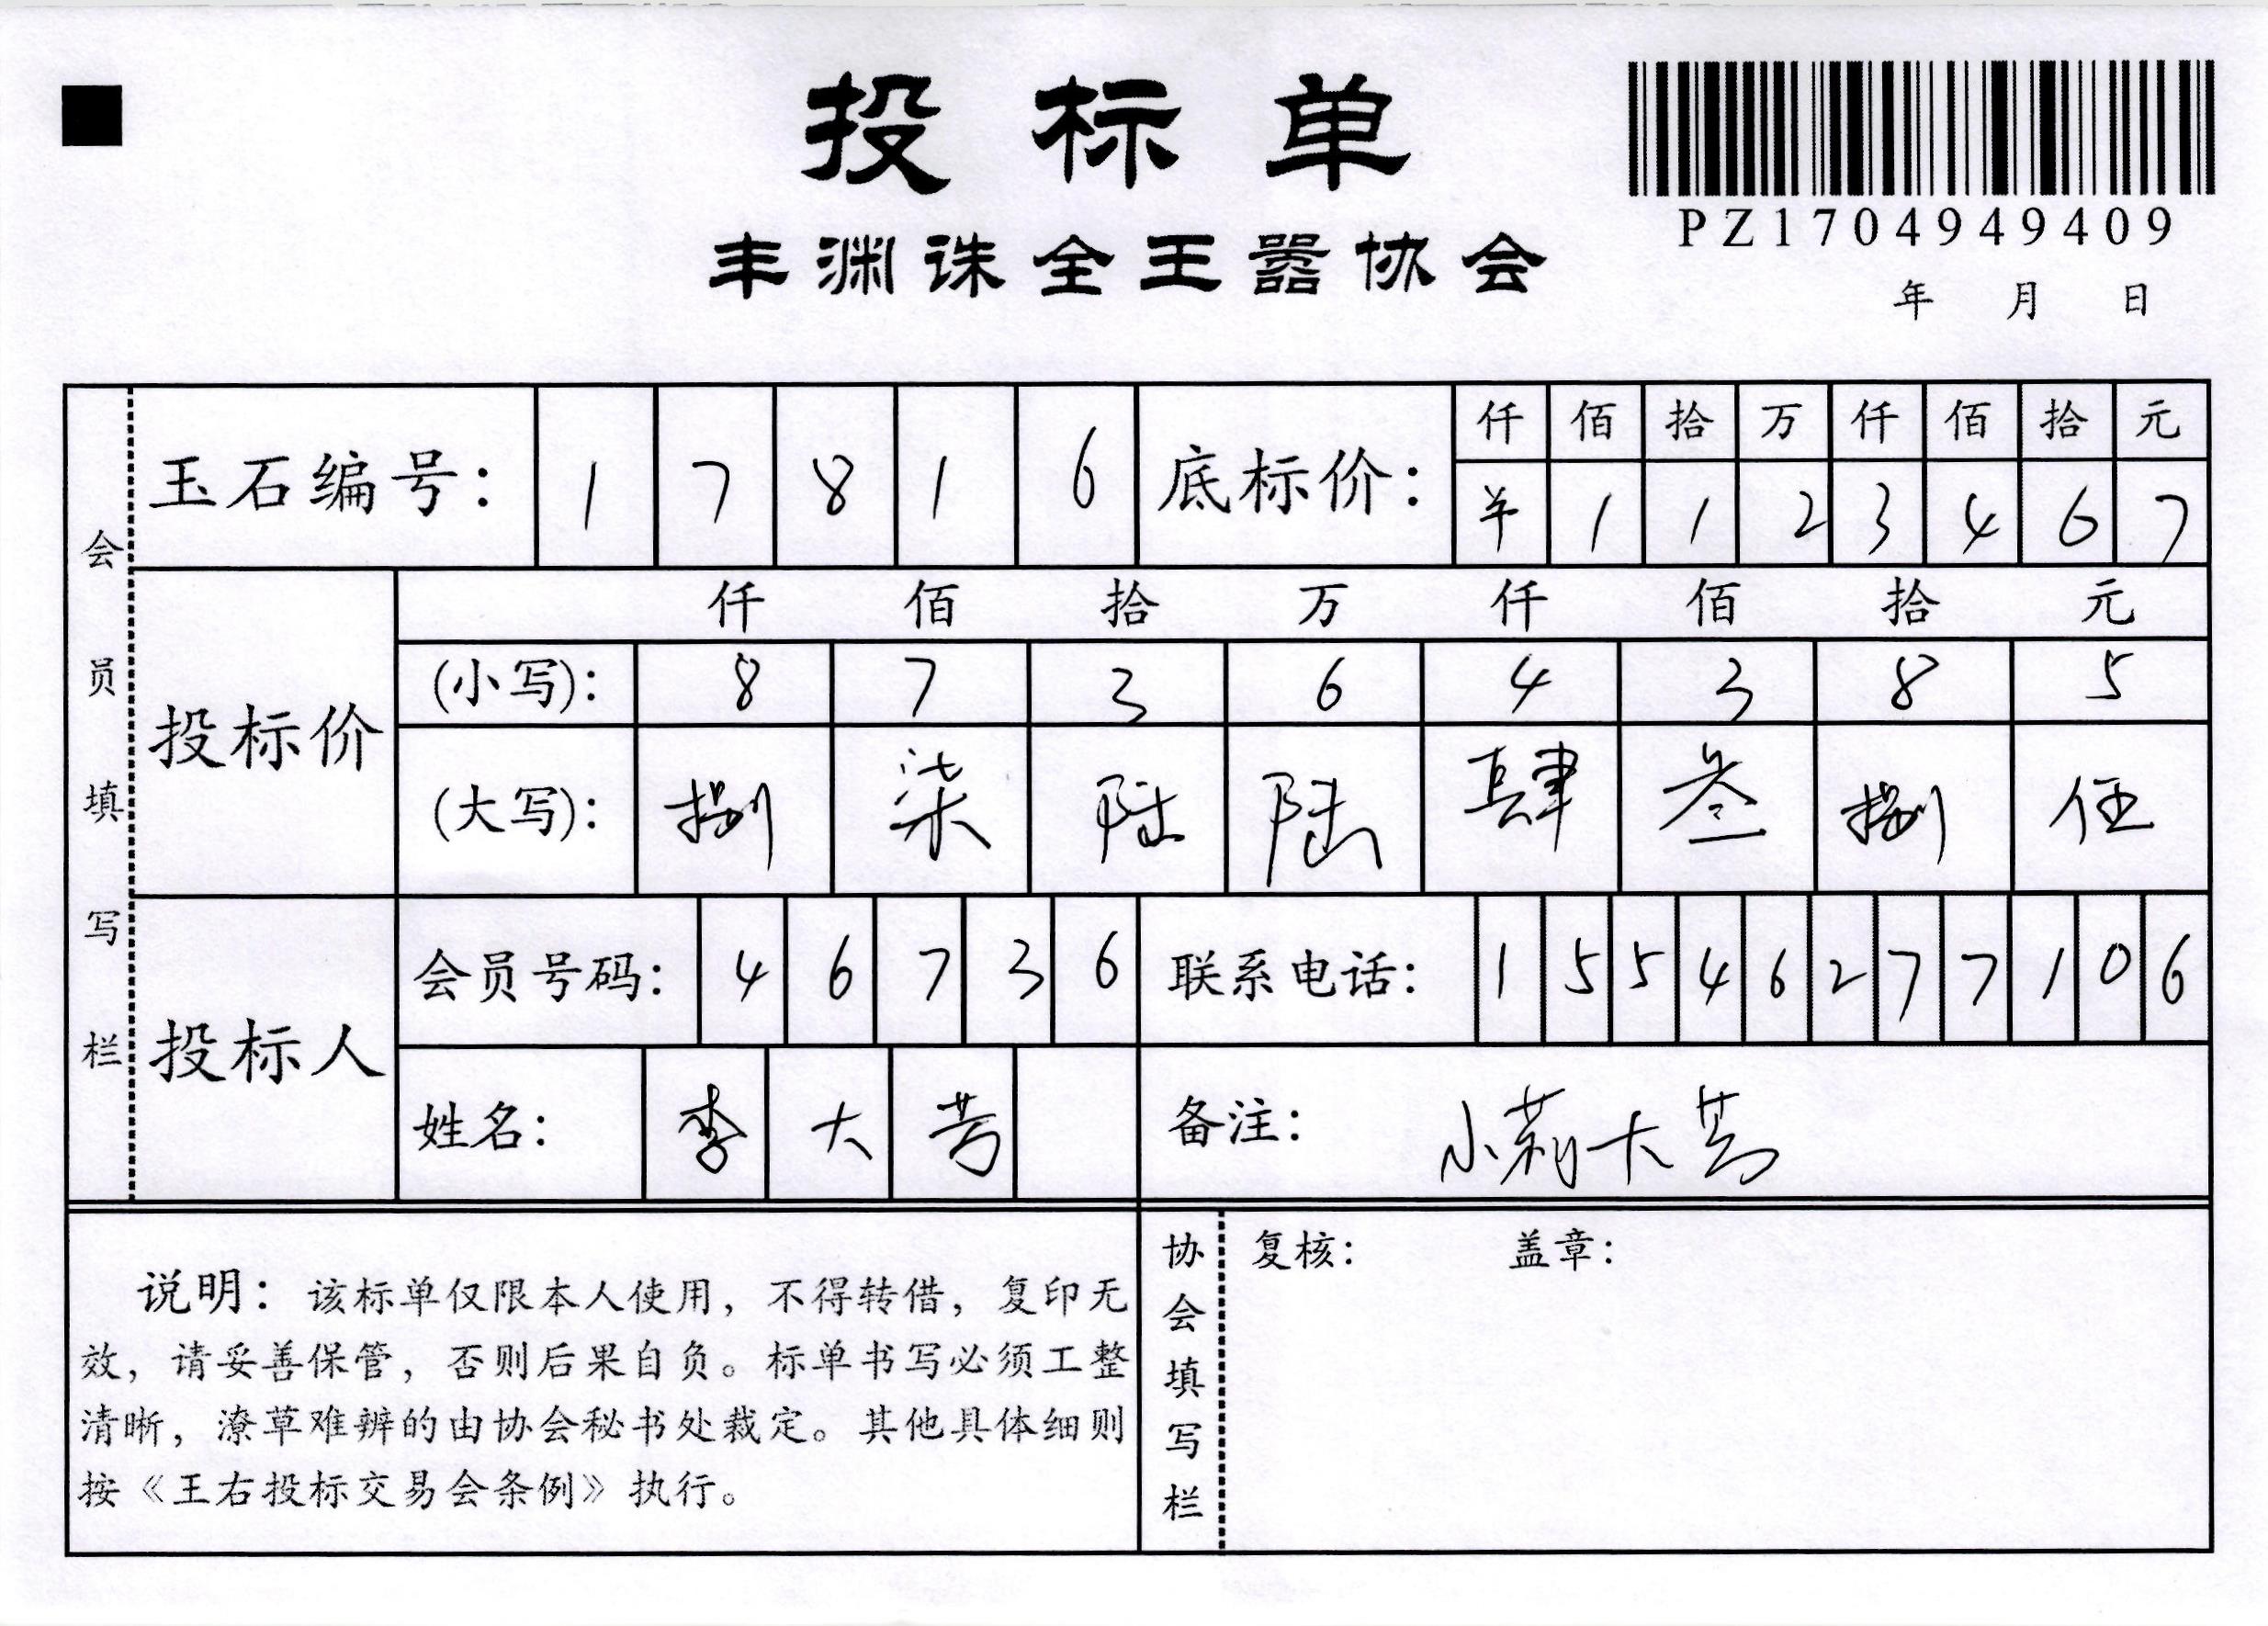 投标单
PZ1704949409
丰渊诛全王嚣协会
年 月 日
会员填写栏
玉石编号： 1 7 8 1 6
底标价： 仟 佰 拾 万 仟 佰 拾 元
¥ 1 1 2 3 4 6 7
投标价
仟 佰 拾 万 仟 佰 拾 元
(小写)： 8 7 3 6 4 3 8 5
(大写)： 捌 柒 陆 陆 肆 叁 捌 伍
投标人
会员号码： 4 6 7 3 6
联系电话： 1 5 5 4 6 2 7 7 1 0 6
姓名： 李 大 芳
备注： 小莉大芳
说明：该标单仅限本人使用，不得转借，复印无
效，请妥善保管，否则后果自负。标单书写必须工整
清晰，潦草难辨的由协会秘书处裁定。其他具体细则
按《王右投标交易会条例》执行。
协会填写栏
复核： 盖章：